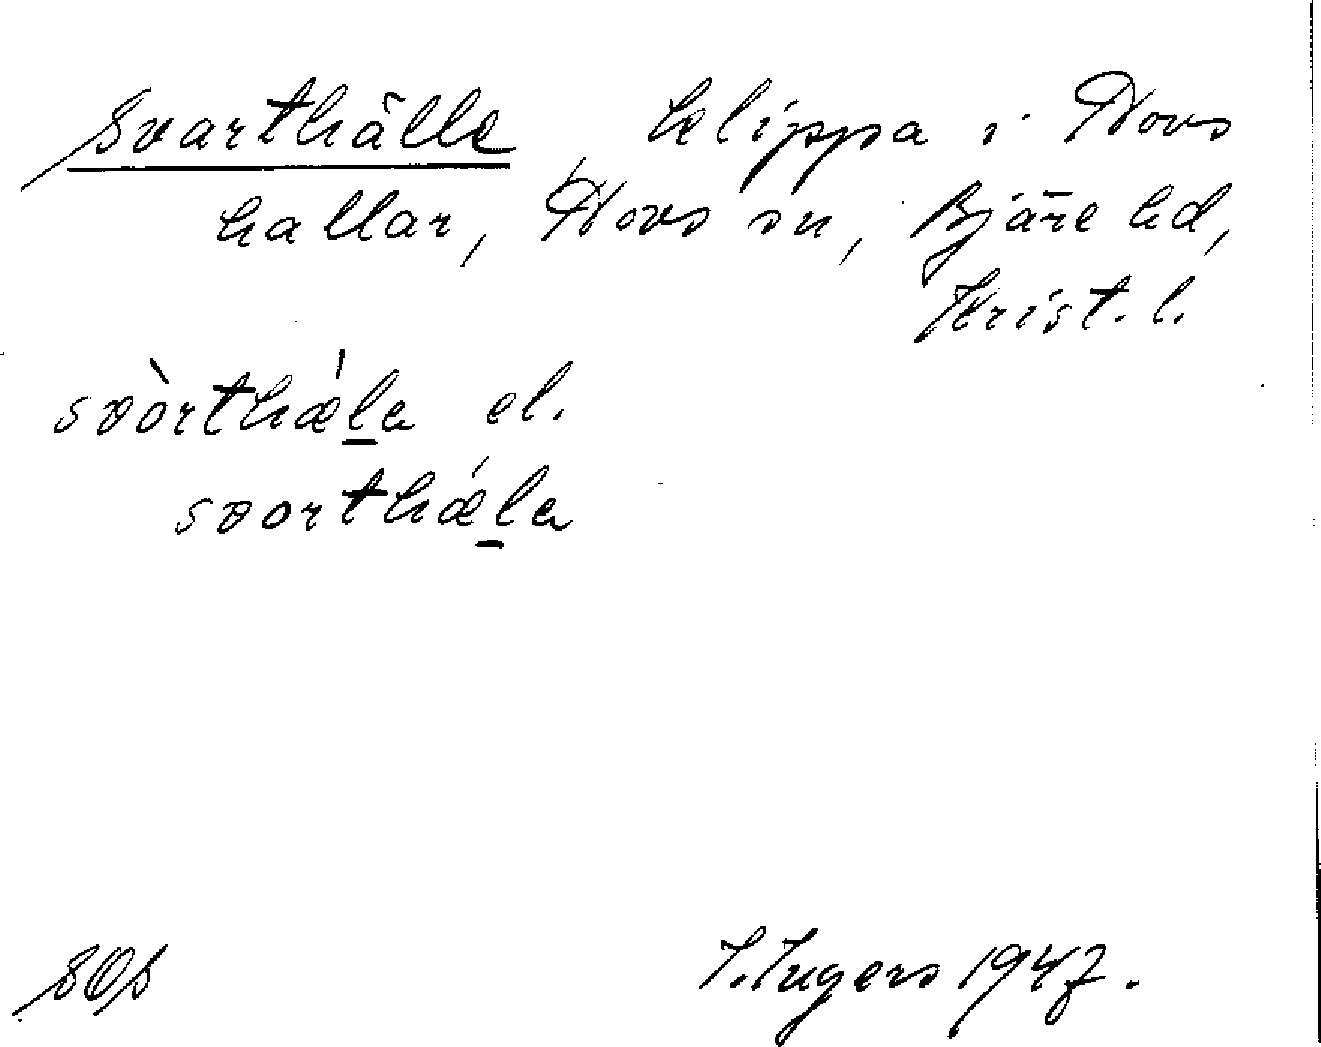 Svarthälle, klippa i Hovs
hallar, Hovs sn, Bjäre hd,
Krist. l.
svòrthæ̀la el.
svorthǽla
SOS
I. Ingers 1947.